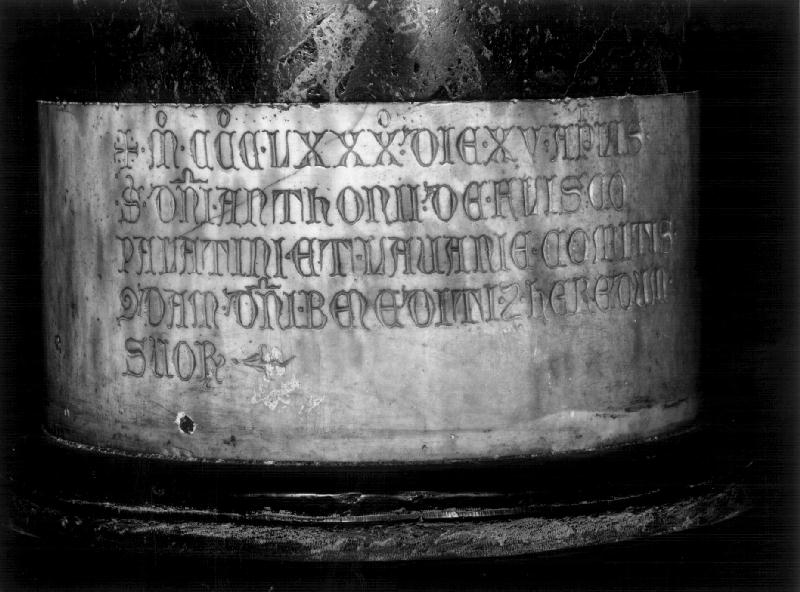 + · M̊ · CC̊C · LXXX̊ · DIE · XV · AP̄LIS ·
S · DN̄I · ANThONII · DE · FLISCO
PALATINI · ET · LAVANIE · COMITIS ·
QDAM · DN̄I · BENEDITI · 7 · hEREDUM ·
SUOR